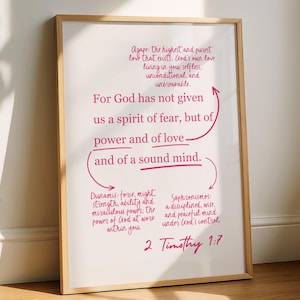 Agape: the highest and purest
love that exists. God's own love
living in you selfless,
unconditional, and
unbreakable.
For God has not given
us a spirit of fear, but of
power and of love
and of a sound mind.
Dunamis: force, might,
strength, ability and
miraculous power; the
power of God at work
within you.
Sophronismos:
a disciplined, wise,
and peaceful mind
under God's control.
2 Timothy 1:7